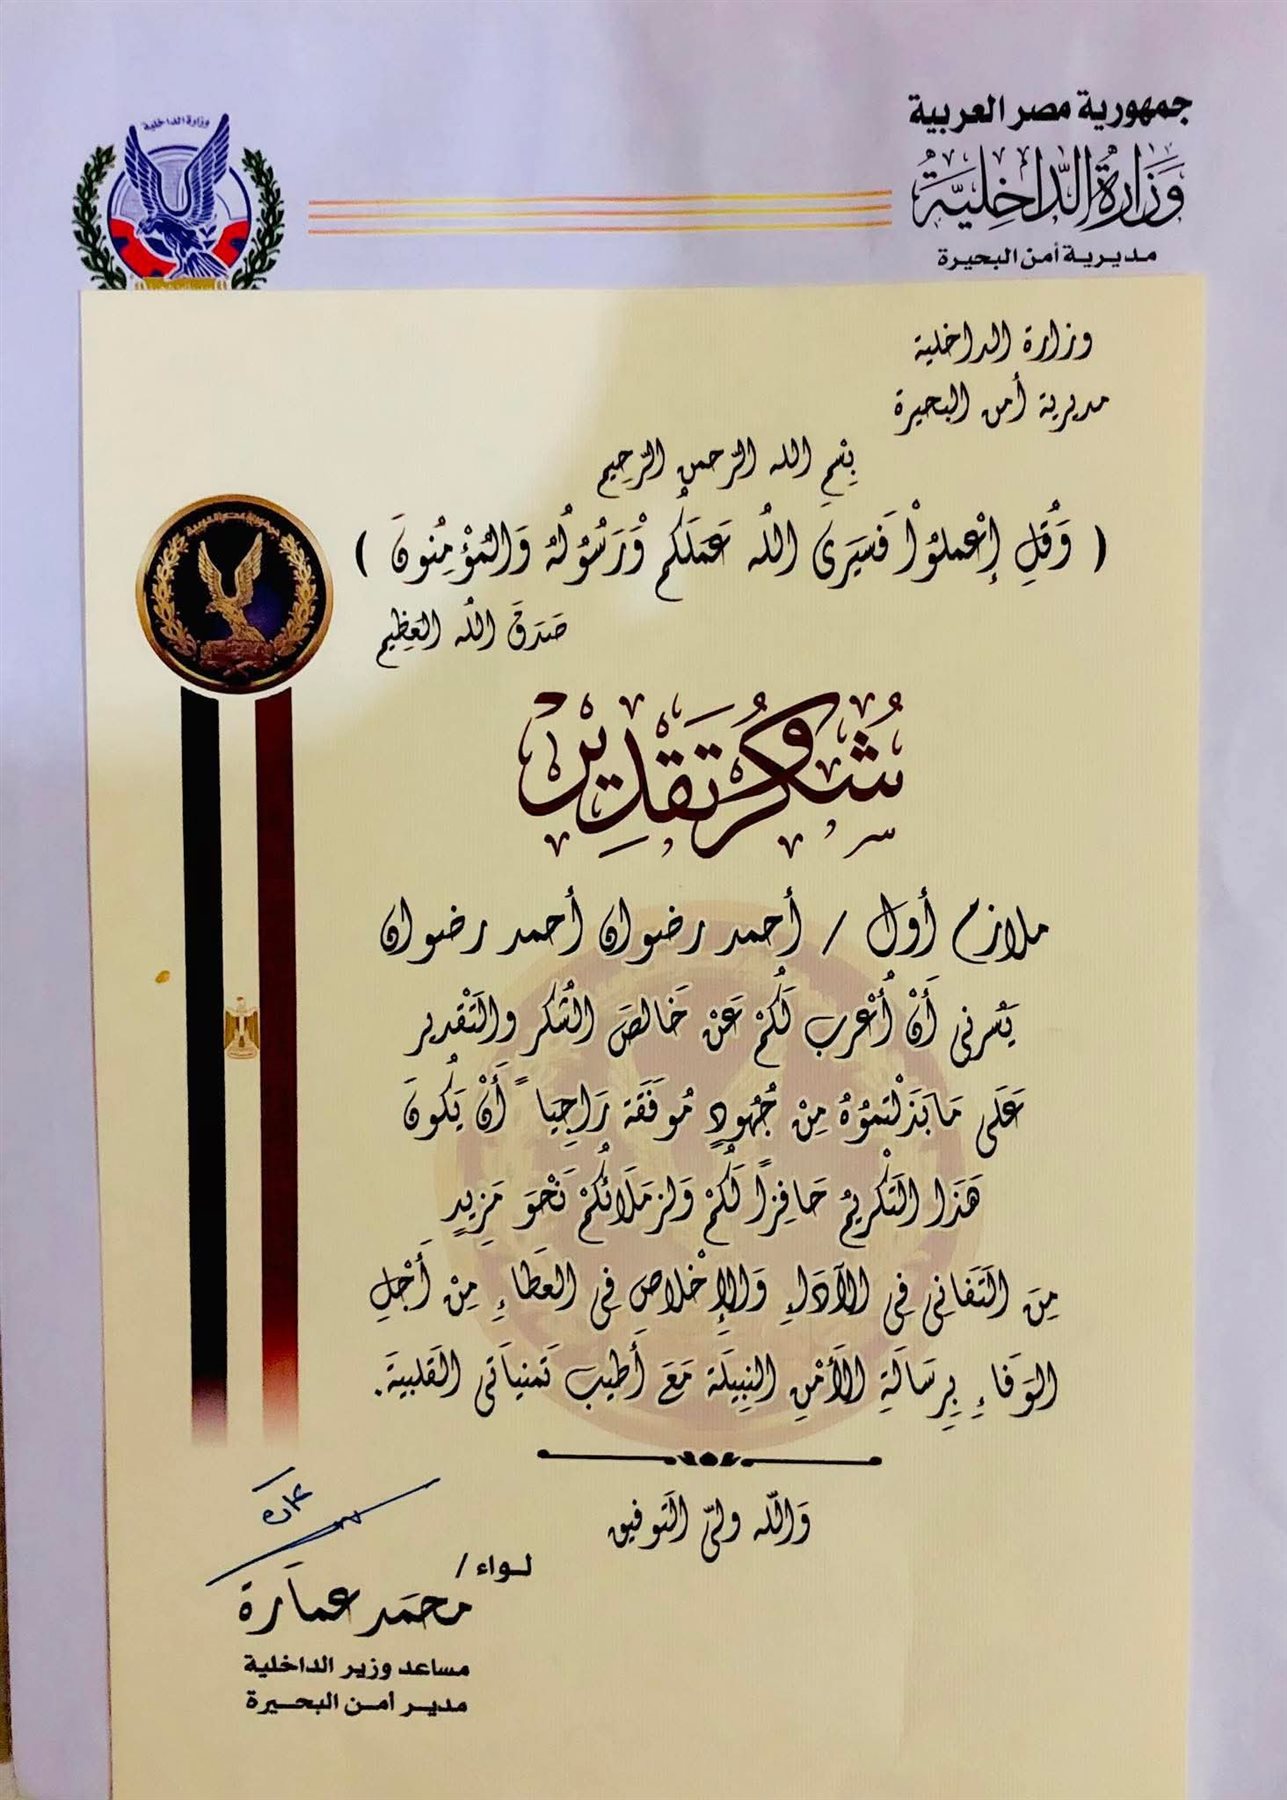 جمهورية مصر العربية
وَزَارَةُ الدَّاخِلِيَّةُ
مديرية أمن البحيرة
وزارة الداخلية
وزارة الداخلية
مديرية أمن البحيرة
بِسْمِ الله الرَّحمنِ الرَّحِيم
( وَقُلِ إعْملُواْ فَسَيَرَى اللهُ عَمَلَكُمْ وَرَسُولُهُ وَالمُؤْمِنُونَ )
صَدَقَ اللهُ العَظِيم
جمهورية مصر العربية
شُكْرٌ وَتَقْدِيرٌ
ملازم أول / أحمد رضوان أحمد رضوان
يَسُرنى أَنْ أُعْرب لَكُمْ عَنْ خَالصَ الشُكر والتَقْدير
عَلَى مَابَذَلْتمُوُهُ مِنْ جُهُودٍ مُوفَقَة رَاجِيَا ً أَنْ يَكُونَ
هَذَا التَكْريمُ حَافِزاً لَكُمْ وَلزمَلَائُكُمْ نَحْوَ مَزِيدٍ
مِنَ التَفَانِى فِى الآدَاءِ وَالإِخْلاصِ فِى العَطَاءِ مِنْ أَجْلِ
الوَفَاءِ بِرِسَالَةِ الأَمْنِ النِبيلَة مَعَ أَطيِب تَمنيَاتى القَلبيَة.
وَاللّه ولىّ التَوفيق
عمارة
لواء /
محمَد عمَارة
مساعد وزير الداخلية
مدير أمن البحيرة